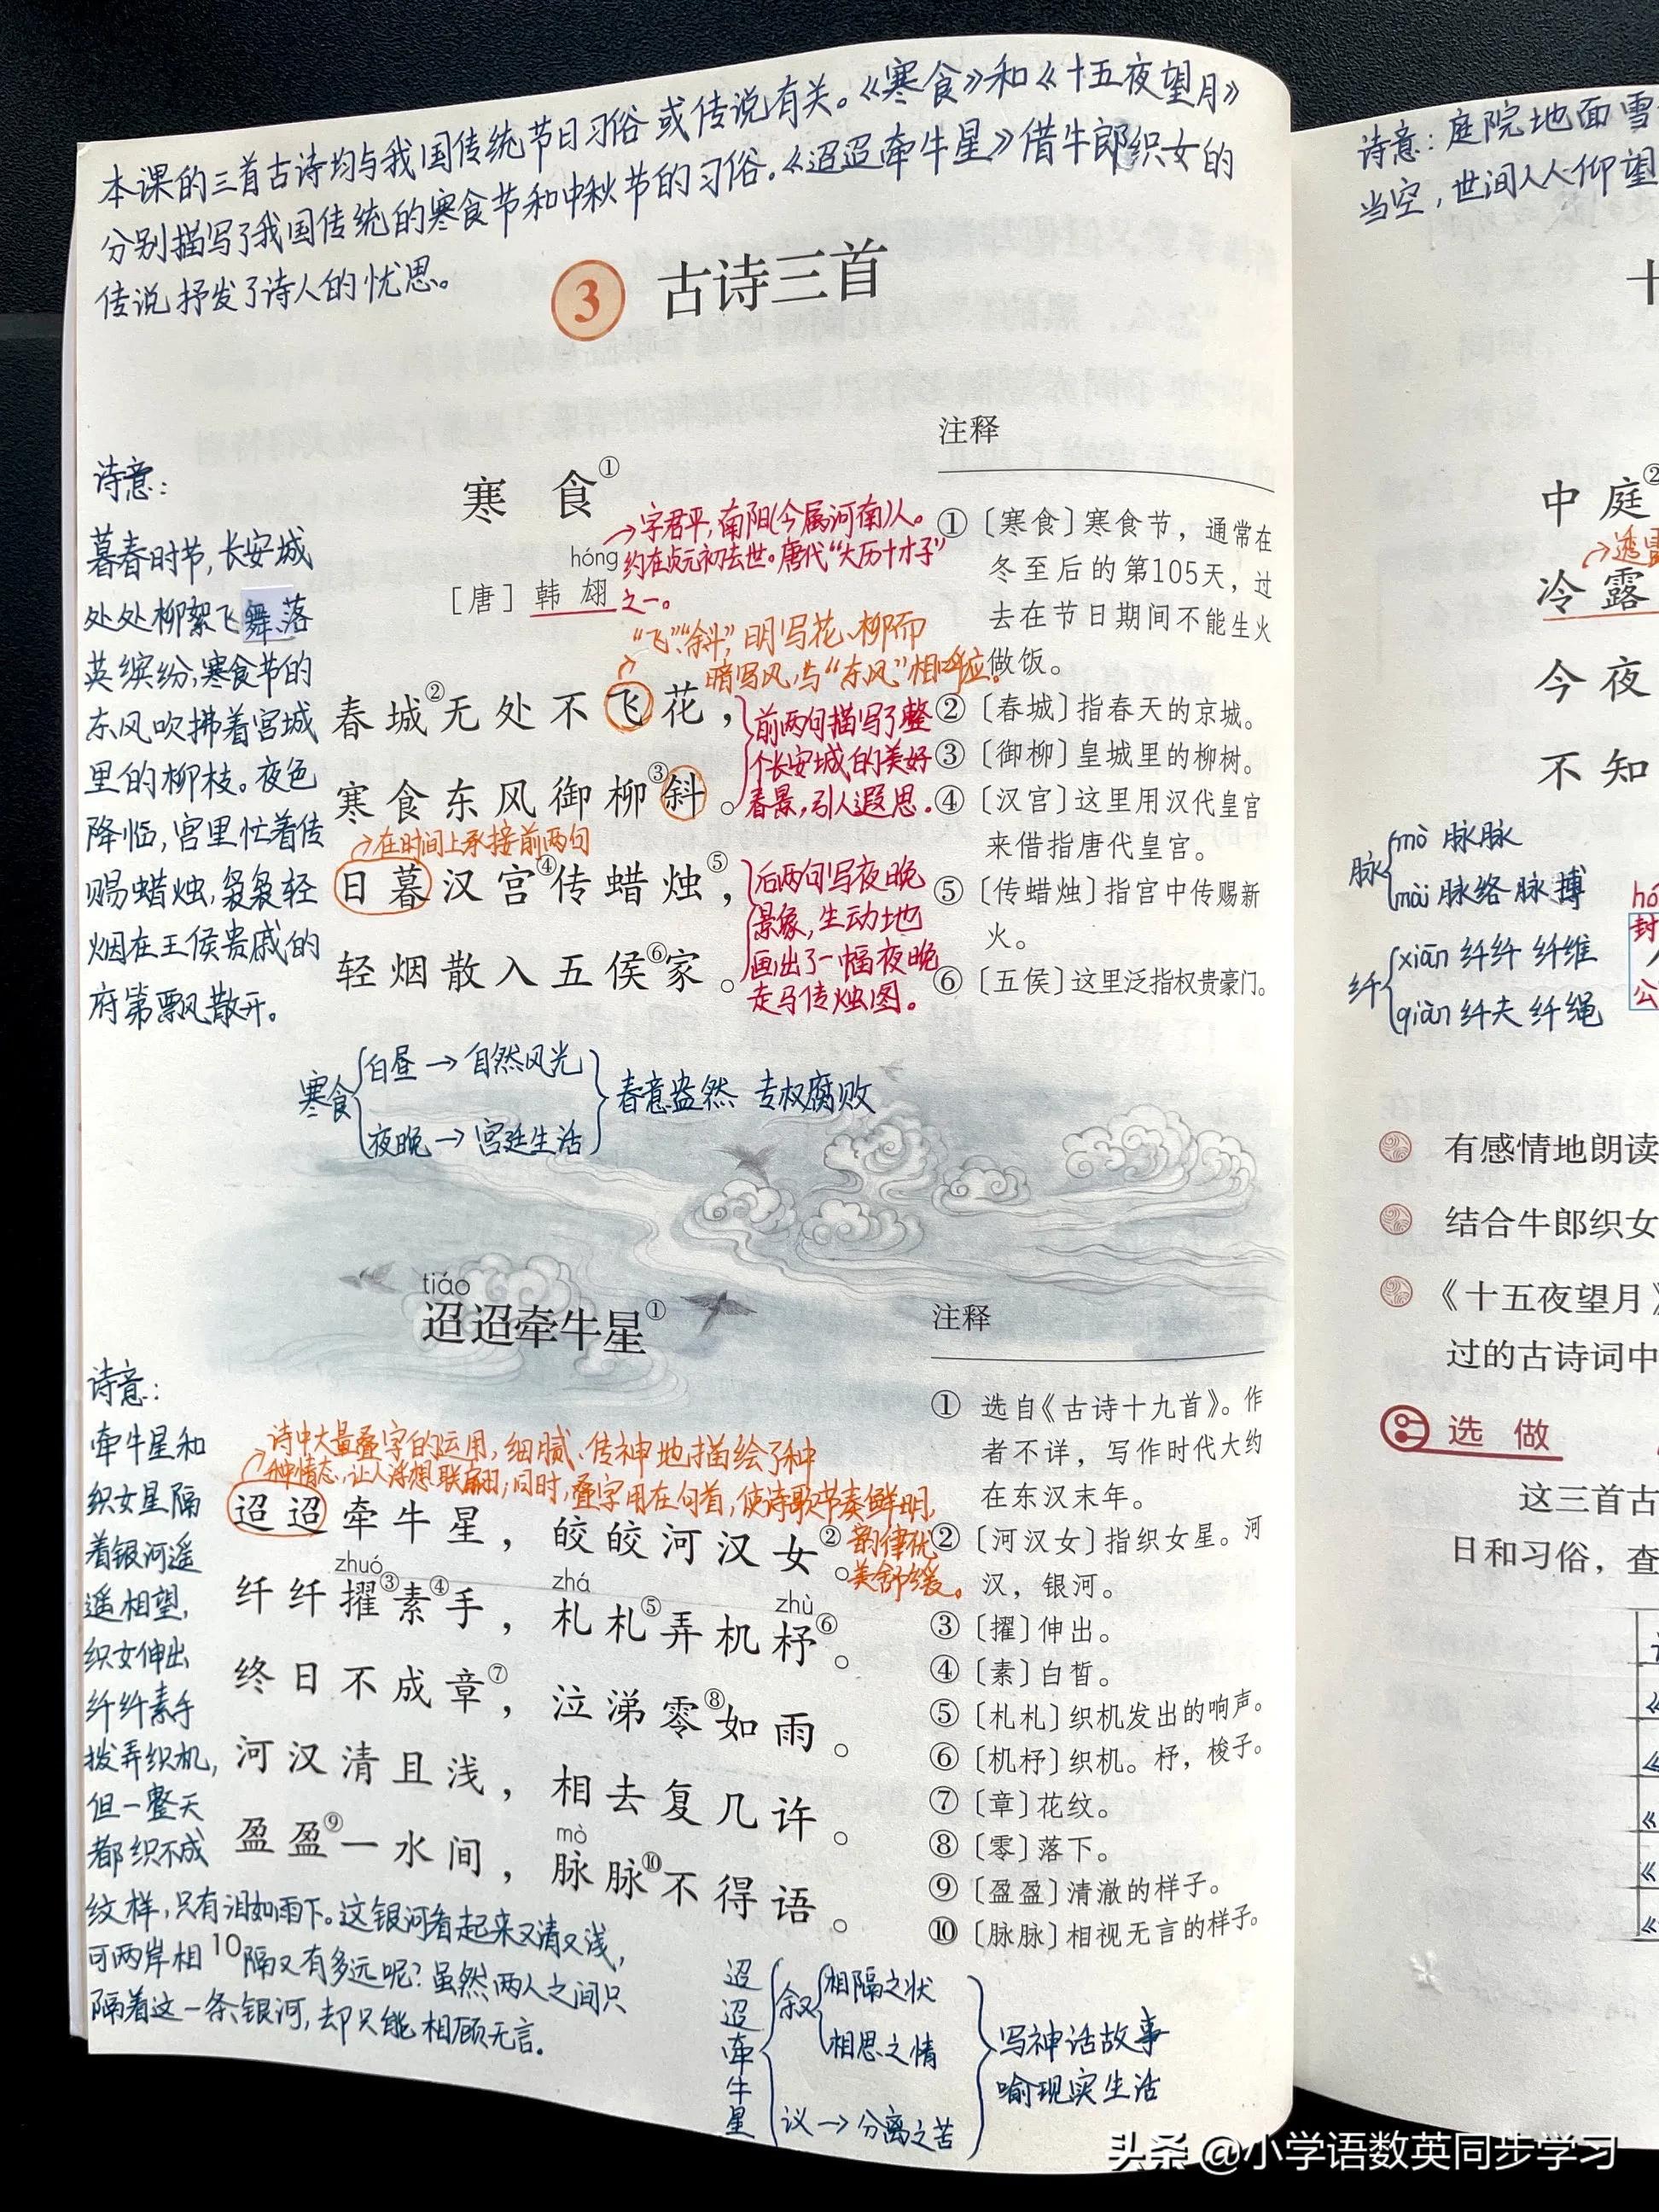 本课的三首古诗均与我国传统节日习俗或传说有关。《寒食》和《十五夜望月》
分别描写了我国传统的寒食节和中秋节的习俗。《迢迢牵牛星》借牛郎织女的
传说抒发了诗人的忧思。
3 古诗三首
诗意：
暮春时节，长安城
处处柳絮飞舞、落
英缤纷，寒食节的
东风吹拂着宫城
里的柳枝。夜色
降临，宫里忙着传
赐蜡烛，袅袅轻
烟在王侯贵戚的
府第飘散开。
寒食①
→字君平，南阳(今属河南)人。
约在贞元初去世。唐代“大历十才子”
之一。
hóng
［唐］韩翃
“飞”“斜”，明写花、柳而
暗写风，与“东风”相呼应。
春城②无处不飞花，
寒食东风御柳③斜。
前两句描写了整
个长安城的美好
春景，引人遐思。
→在时间上承接前两句
日暮汉宫④传蜡烛⑤，
轻烟散入五侯⑥家。
后两句写夜晚
景象，生动地
画出了一幅夜晚
走马传烛图。
注释
①〔寒食〕寒食节，通常在
冬至后的第105天，过
去在节日期间不能生火
做饭。
②〔春城〕指春天的京城。
③〔御柳〕皇城里的柳树。
④〔汉宫〕这里用汉代皇宫
来借指唐代皇宫。
⑤〔传蜡烛〕指宫中传赐新
火。
⑥〔五侯〕这里泛指权贵豪门。
寒食
白昼→自然风光
夜晚→宫廷生活
春意盎然 专权腐败
tiáo
迢迢牵牛星①
诗意：
牵牛星和
织女星隔
着银河遥
遥相望，
织女伸出
纤纤素手
拨弄织机，
但一整天
都织不成
纹样，只有泪如雨下。这银河看起来又清又浅，
可两岸相隔又有多远呢？虽然两人之间只
隔着这一条银河，却只能相顾无言。
10
诗中大量叠字的运用，细腻、传神地描绘了种
种情态，让人浮想联翩；同时，叠字用在句首，使诗歌节奏鲜明，
韵律优
美舒缓。
迢迢牵牛星，皎皎河汉女②。
zhuó zhá zhù
纤纤擢③素④手，札札⑤弄机杼⑥。
终日不成章⑦，泣涕零⑧如雨。
河汉清且浅，相去复几许。
mò
盈盈⑨一水间，脉脉⑩不得语。
注释
① 选自《古诗十九首》。作
者不详，写作时代大约
在东汉末年。
②〔河汉女〕指织女星。河
汉，银河。
③〔擢〕伸出。
④〔素〕白皙。
⑤〔札札〕织机发出的响声。
⑥〔机杼〕织机。杼，梭子。
⑦〔章〕花纹。
⑧〔零〕落下。
⑨〔盈盈〕清澈的样子。
⑩〔脉脉〕相视无言的样子。
迢迢牵牛星
叙
相隔之状
相思之情
议→分离之苦
写神话故事
喻现实生活
诗意：庭院地面雪
当空，世间人人仰望
十
中庭②
冷露
今夜
不知
脉
mò 脉脉
mài 脉络 脉搏
纤
xiān 纤纤 纤维
qiàn 纤夫 纤绳
有感情地朗读
结合牛郎织女
《十五夜望月》
过的古诗词中
选做
这三首古
日和习俗，查
头条 @小学语数英同步学习